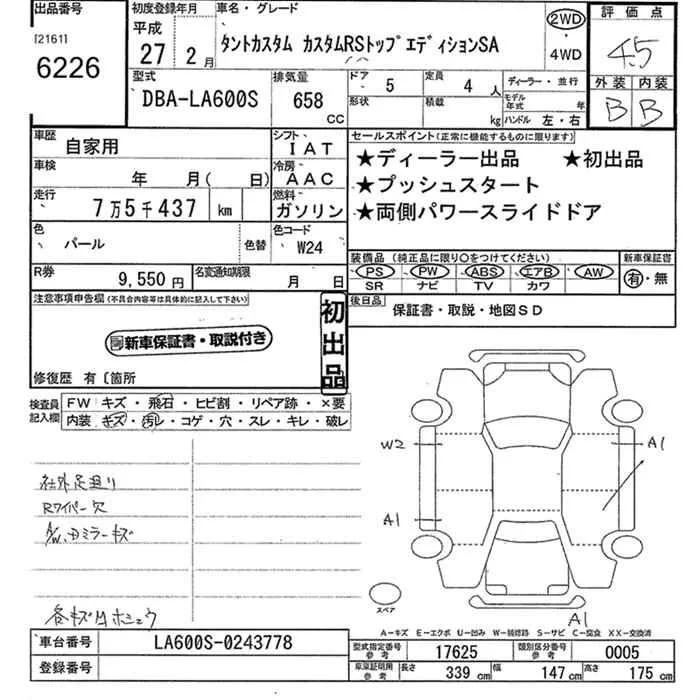 出品番号
[2161]
6226
初度登録年月
平成
27 2月
車名・グレード
タントカスタム カスタムRSトップエディションSA
2WD
・
4WD
評価点
4.5
外装 内装
B B
型式
DBA-LA600S
排気量
658
CC
ドア 5
定員 4 人
形状
積載 kg
ディーラー・並行
モデル年式 年
ハンドル 左・右
車歴 自家用
シフト IAT
車検 年 月( 日)
冷房 AAC
走行 7万5千437 km
燃料 ガソリン
色 パール
色替
色コード W24
R券 9,550円
名変通知期限 月 日
セールスポイント(正常に機能するものに限ります)
★ディーラー出品 ★初出品
★プッシュスタート
★両側パワースライドドア
装備品(純正品に限り○をつけてください)
PS PW ABS エアB AW
SR ナビ TV カワ
新車保証書
有・無
後日品
保証書・取説・地図SD
注意事項申告欄(不具合内容等は具体的に記入して下さい)
新車保証書・取説付き
初出品
修復歴 有〔箇所
検査員記入欄
FW キズ・飛石・ヒビ割・リペア跡・×要
内装 キズ・汚レ・コゲ・穴・スレ・キレ・破レ
社外足廻り
Rワイパー欠
ミラーキズ
W2
A1
A1
A1
スペア
A-キズ E-エクボ U-凹み W-補修跡 S-サビ C-腐食 XX-交換済
車台番号 LA600S-0243778
登録番号
型式指定番号 参考 17625
類別区分番号 参考 0005
車庫証明用 参考
長さ 339 cm
幅 147 cm
高さ 175 cm